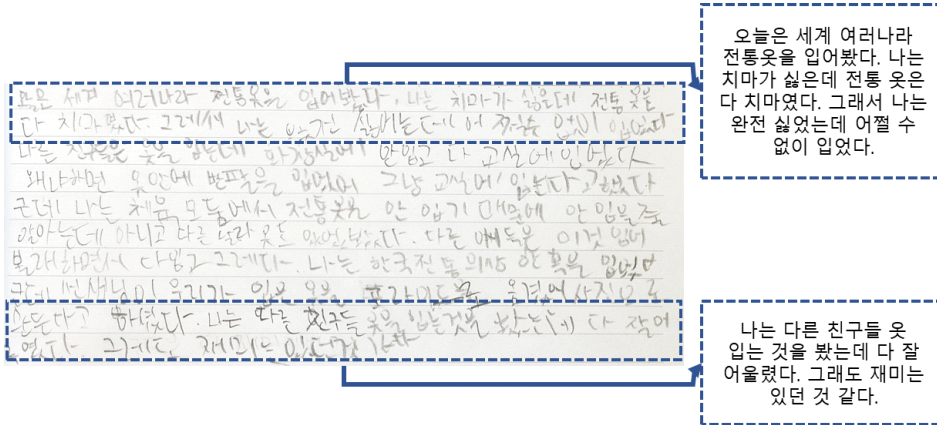 오늘은 세계 여러나라 전통옷을 입어봤다. 나는 치마가 싫은데 전통 옷은
다 치마였다. 그래서 나는 완전 싫었는데 어쩔수 없이 입었다
다른 친구들은 옷을 입는데 화장실에서 안입고 다 교실에 입었다
왜냐하면 옷안에 반팔을 입었어 그냥 교실에 입는다고 했다
근데 나는 체육 모둠에서 전통옷은 안 입기 때문에 안 입을줄
알아는데 아니고 다른 나라 옷도 입었다. 다른 애들은 이것 입어
볼래하면서 다 그레다. 나는 한국전통의상 한복을 입었다
근데 선생님이 우리가 입은 옷을 사진으로
만든다고 하셨다. 나는 다른 친구들 옷을 입는것을 봤는데 다 잘어
렸다. 그레도 재미는 있던것 같다
오늘은 세계 여러나라
전통옷을 입어봤다. 나는
치마가 싫은데 전통 옷은
다 치마였다. 그래서 나는
완전 싫었는데 어쩔 수
없이 입었다.
나는 다른 친구들 옷
입는 것을 봤는데 다 잘
어울렸다. 그래도 재미는
있던 것 같다.